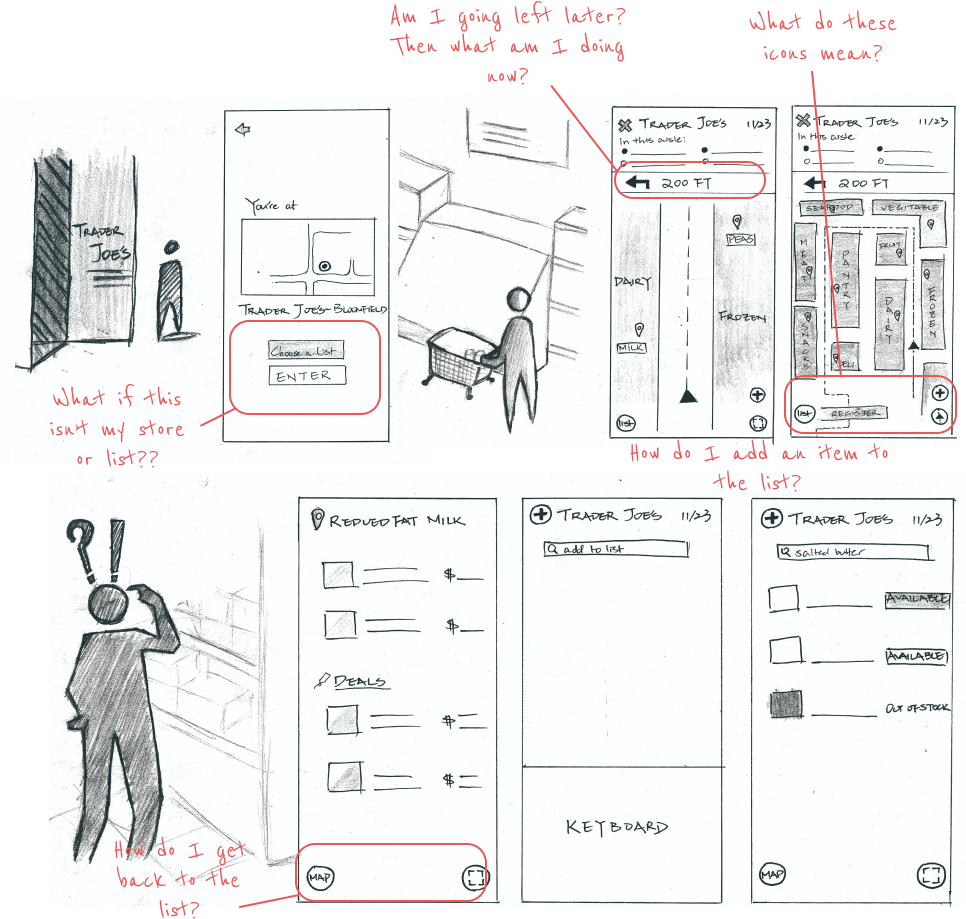 Am I going left later?
Then what am I doing
now?
What do these
icons mean?
TRADER
JOE'S
You're at
TRADER JOE'S-BLOOMFIELD
Choose a List
ENTER
What if this
isnt my store
or list??
TRADER JOE'S 11/23
In this aisle:
200 FT
PEAS
DAIRY
FROZEN
MILK
list
TRADER JOE'S 11/23
In this aisle:
200 FT
SEAFOOD
VEGITABLE
MEAT
PANTRY
FRUIT
DAIRY
FROZEN
SNACKS
DELI
list
REGISTER
How do I add an item to
the list?
?!
REDUED FAT MILK
$
$
DEALS
$
$
MAP
How do I get
back to the
list?
TRADER JOE'S 11/23
add to list
KEYBOARD
TRADER JOE'S 11/23
salted butter
AVAILABLE
AVAILABLE
OUT OF STOCK
MAP